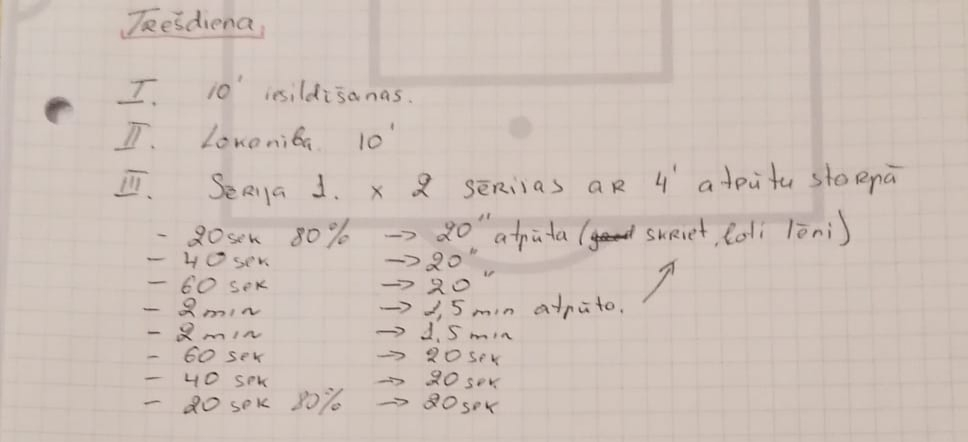 Trešdiena
I. 10' iesildīšanas.
II. Lokanība 10'
III. Sērija 1. x 2 sērijas ar 4' atpūtu starpā
- 20 sek 80% -> 20" atpūta (skriet ļoti lēni)
- 40 sek -> 20"
- 60 sek -> 20"
- 2 min -> 1,5 min atpūta.
- 2 min -> 1.5 min
- 60 sek -> 20 sek
- 40 sek -> 20 sek
- 20 sek 80% -> 20 sek